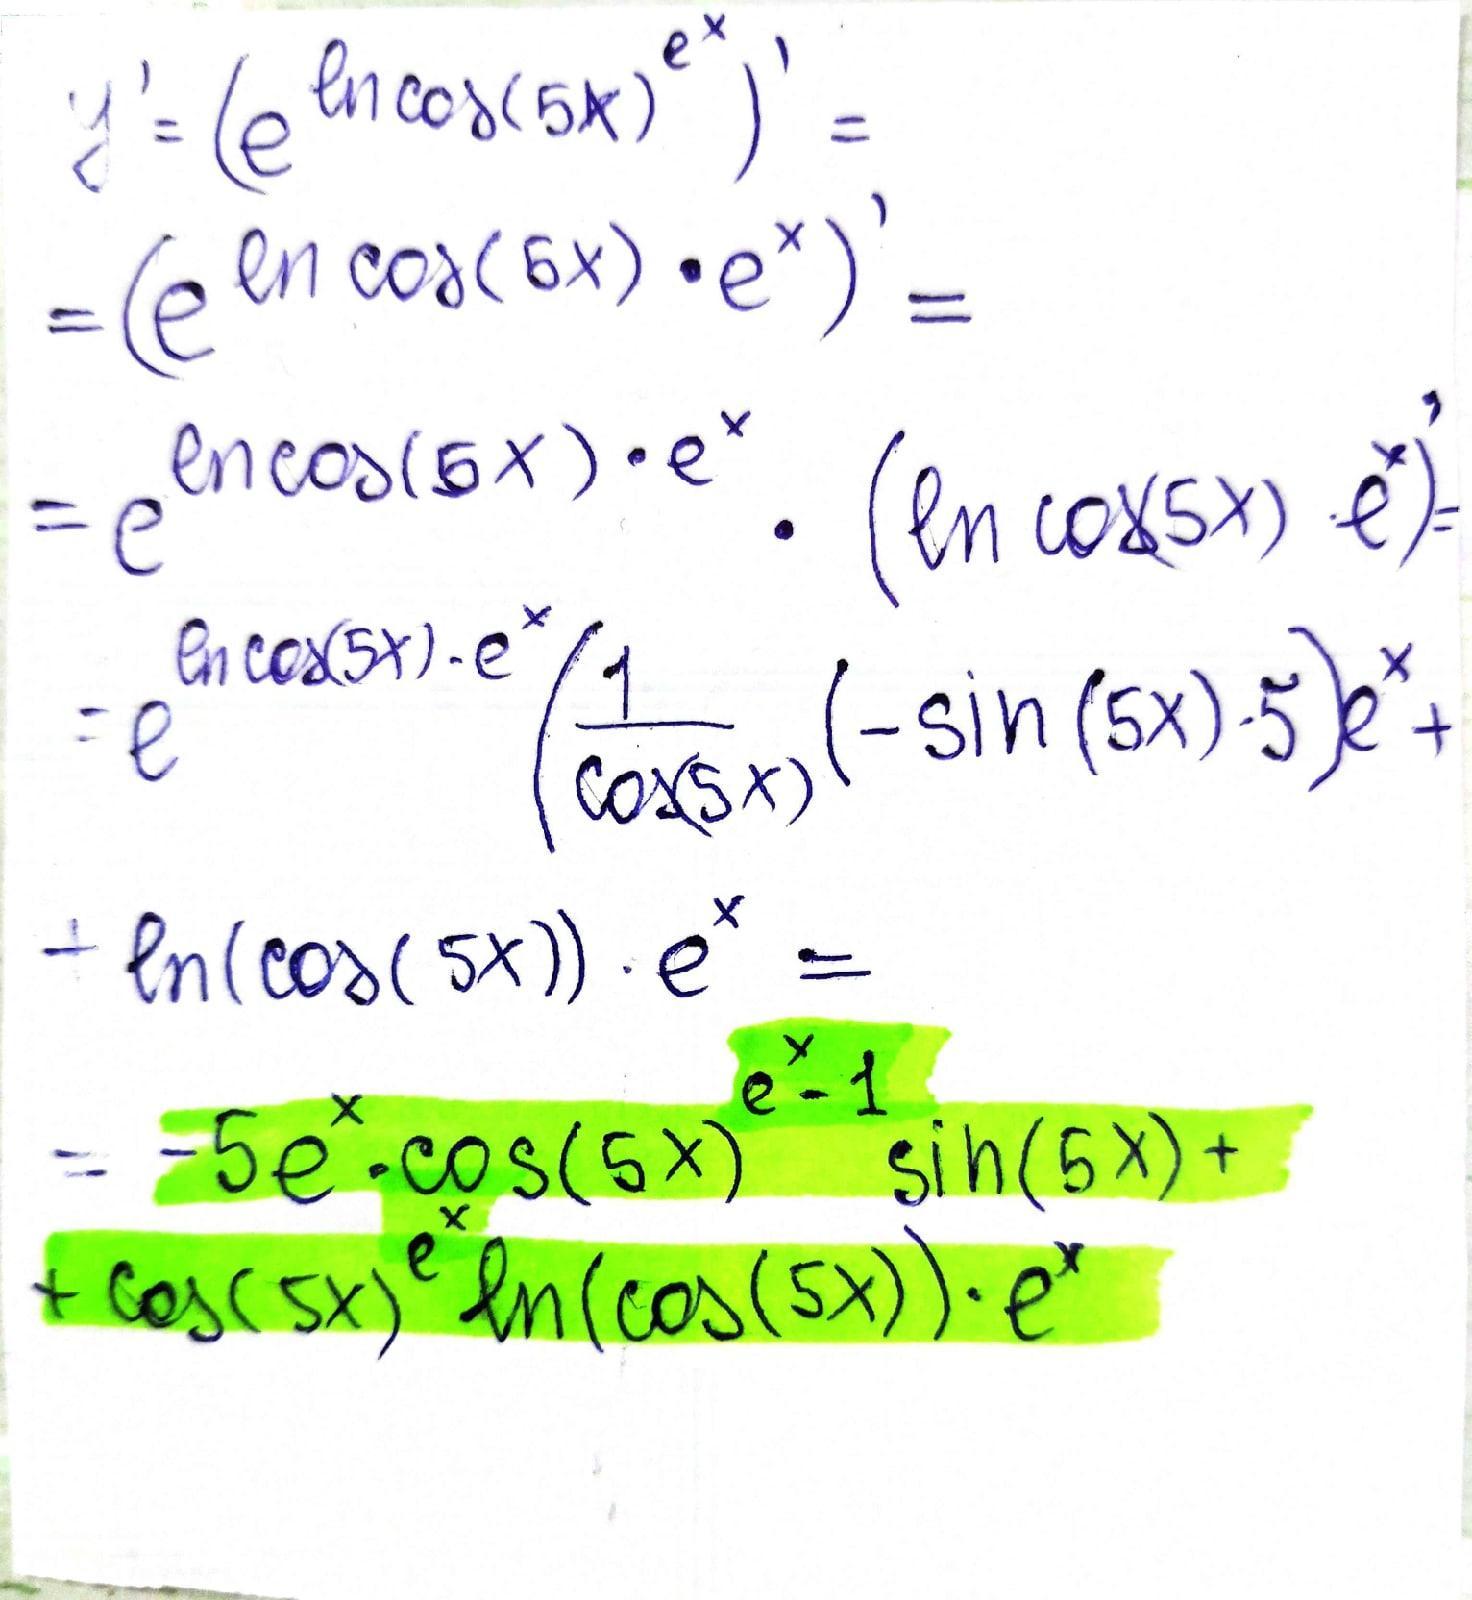 y' = (e^{ln cos(5x)^{e^x}})' =
= (e^{ln cos(5x) · e^x})' =
= e^{ln cos(5x) · e^x} · (ln cos(5x) · e^x)' =
= e^{ln cos(5x) · e^x} (1/cos(5x) (-sin(5x) · 5) e^x +
+ ln(cos(5x)) · e^x =
= -5e^x · cos(5x)^{e^x - 1} sin(5x) +
+ cos(5x)^{e^x} ln(cos(5x)) · e^x